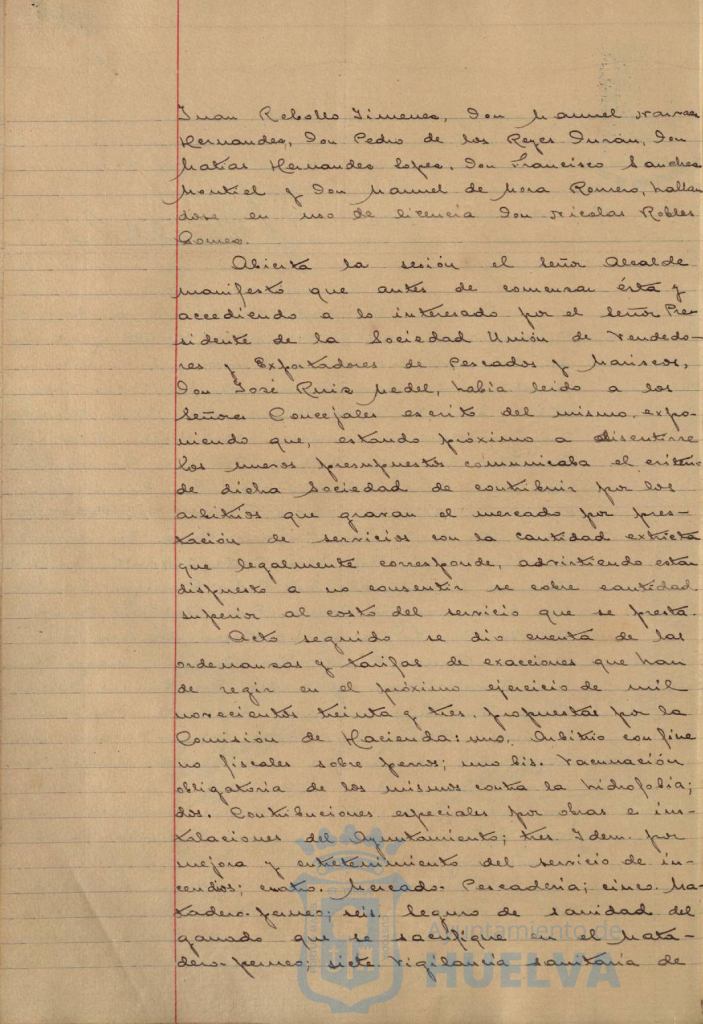 Juan Rebollo Jimenez, Don Manuel Narvaez
Hernandez, Don Pedro de los Reyes Durán, Don
Matias Hernandez Lopez, Don Francisco Sanchez
Montiel y Don Manuel de Mora Romero, hallan
dose en uso de licencia Don Nicolas Robles
Gomez.
Abierta la sesión el Señor Alcalde
manifestó que antes de comenzar ésta y
accediendo a lo interesado por el Señor Pre-
sidente de la Sociedad Unión de Vendedo-
res y Exportadores de Pescados y Mariscos,
Don José Ruiz Medel, había leido a los
Señores Concejales escrito del mismo, expo-
niendo que, estando próximo a discutirse
los nuevos presupuestos comunicaba el criterio
de dicha Sociedad de contribuir por los
arbitrios que gravan el mercado por pres-
tación de servicios con la cantidad extricta
que legalmente corresponde, advirtiendo estar
dispuesto a no consentir se cobre cantidad
superior al costo del servicio que se presta.
Acto seguido se dio cuenta de las
ordenanzas y tarifas de exacciones que han
de regir en el próximo ejercicio de mil
novecientos treinta y tres, propuestas por la
Comisión de Hacienda: uno. Arbitrio con fines
no fiscales sobre perros; uno bis. Vacunación
obligatoria de los mismos contra la hidrofobia;
dos. Contribuciones especiales por obras e ins-
talaciones del Ayuntamiento; tres. Idem. por
mejora y entretenimiento del servicio de in-
cendios; cuatro. Mercado. Pescadería; cinco. Ma-
tadero. perneo; seis. Seguro de sanidad del
ganado que se sacrifique en el Mata-
dero-perneo; siete. Vigilancia sanitaria de
Ayuntamiento de
HUELVA